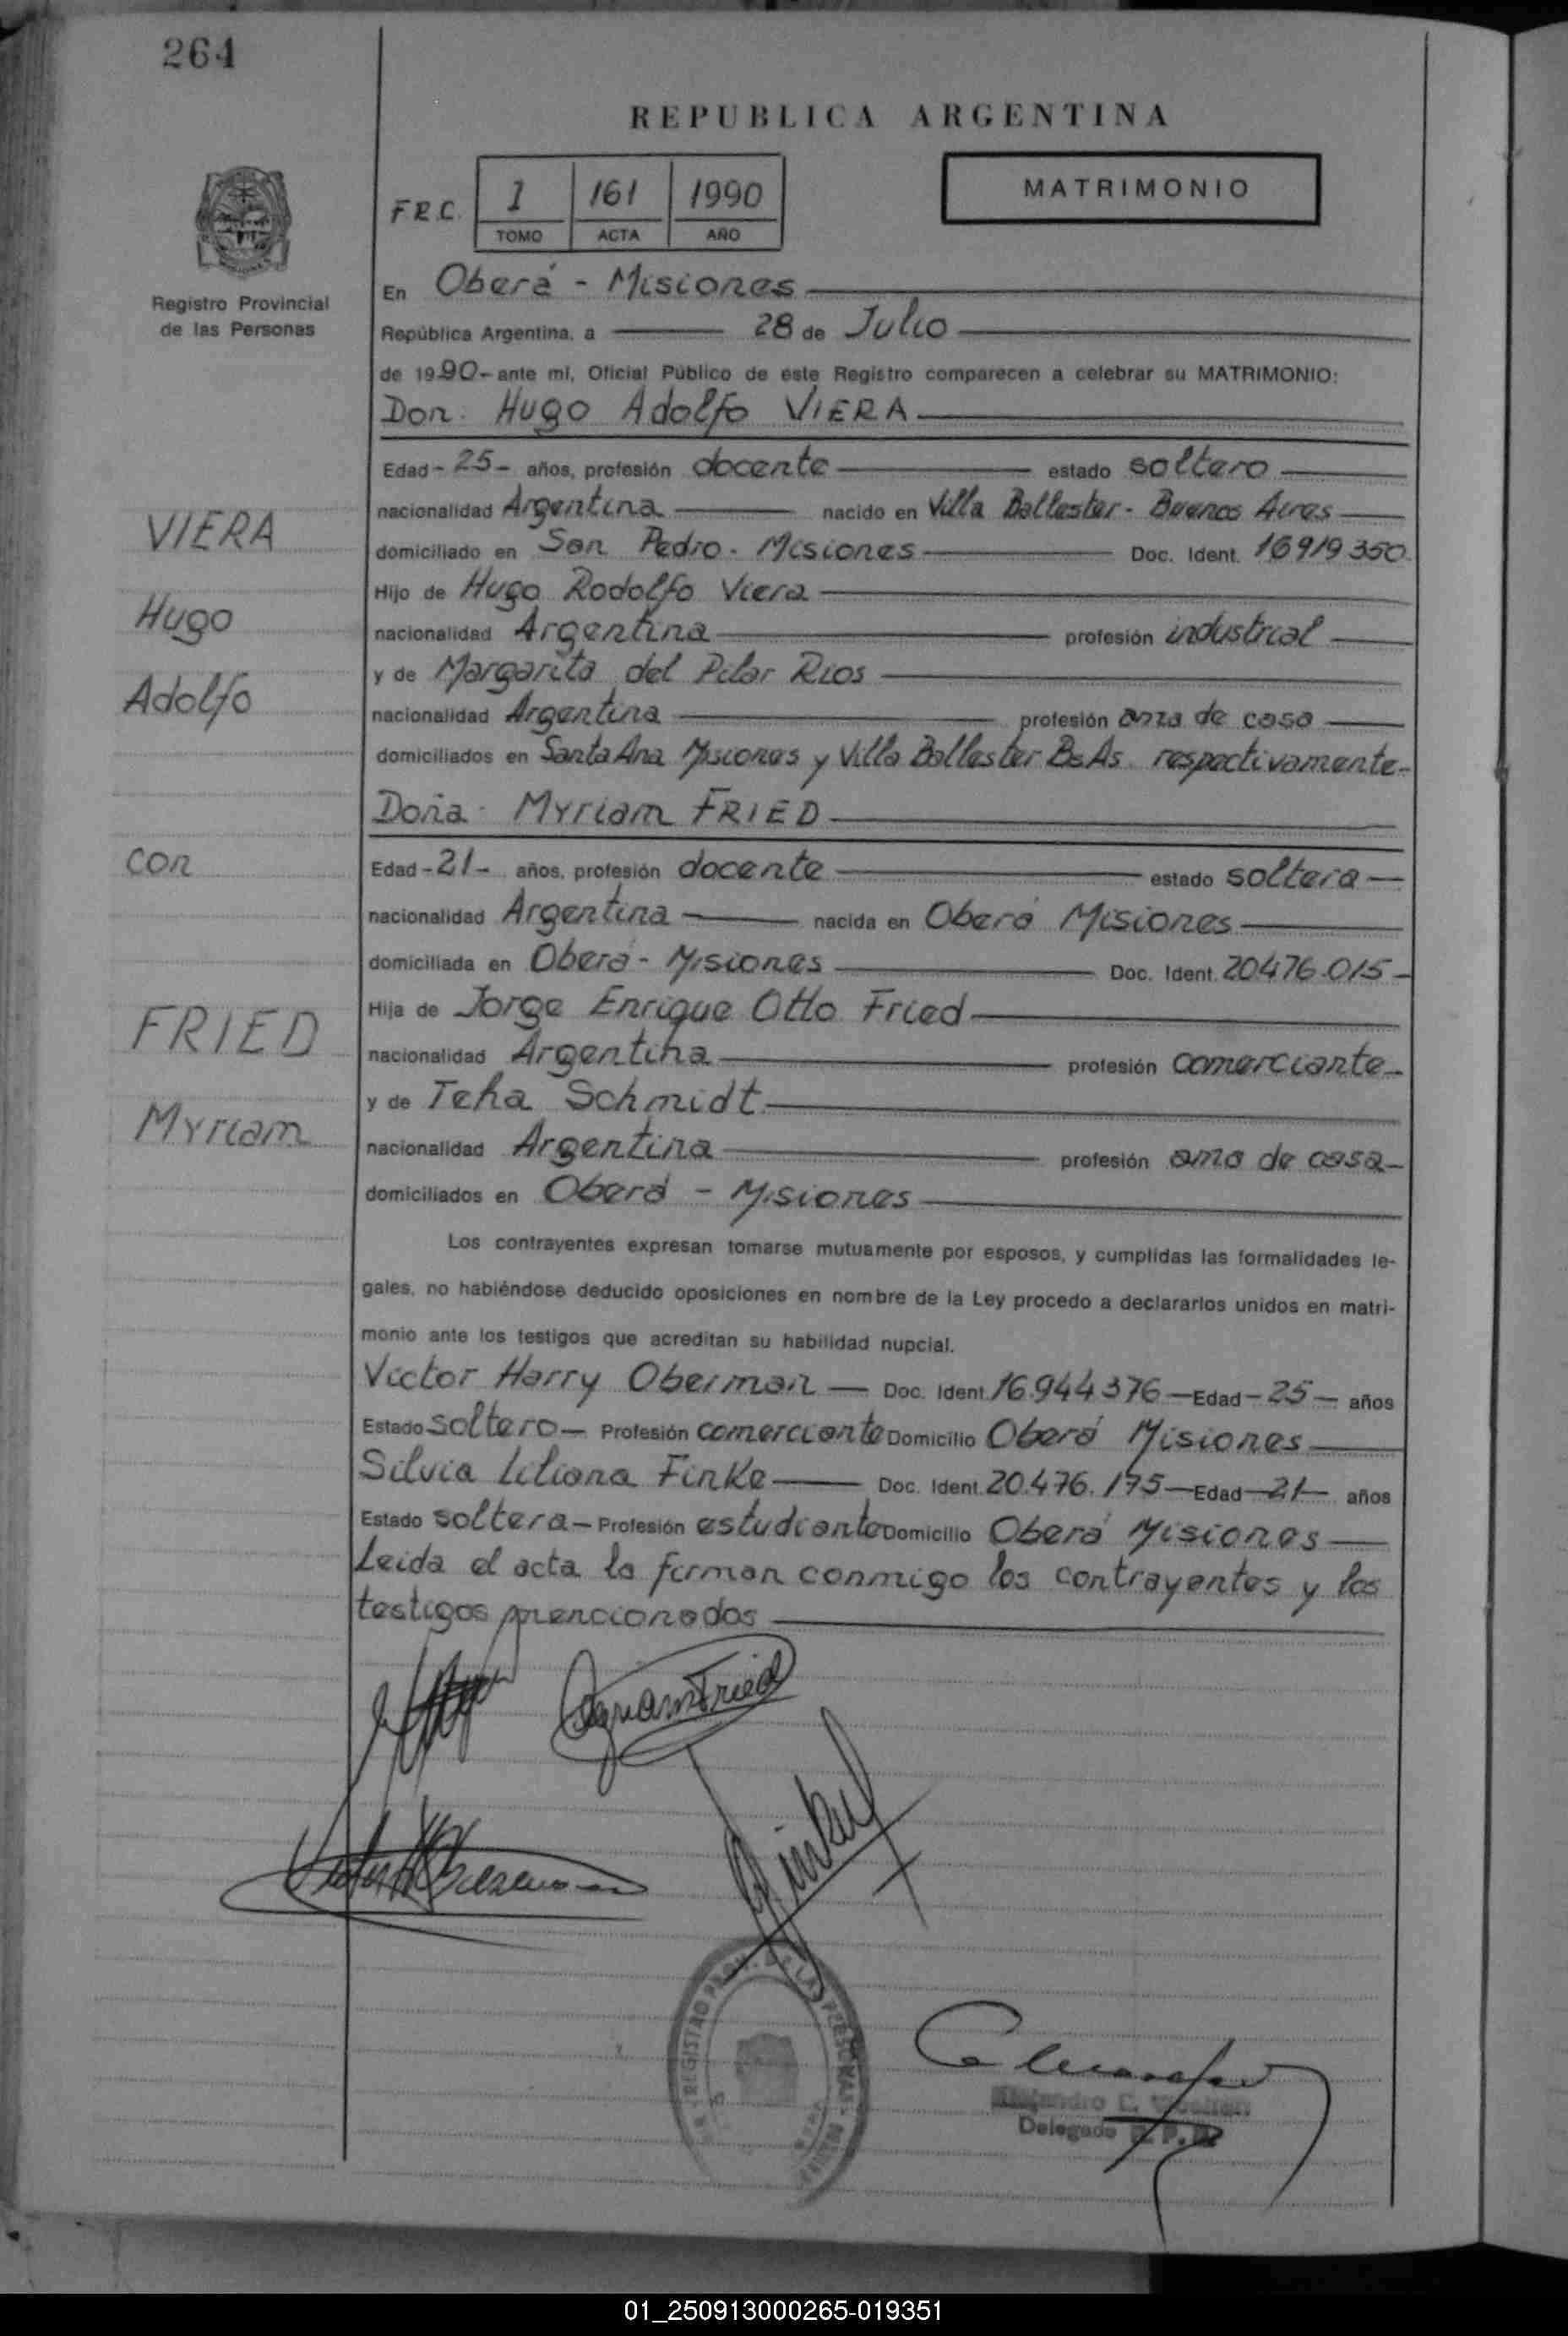 264
REPUBLICA ARGENTINA
F.R.C. I 161 1990
TOMO ACTA AÑO
MATRIMONIO
Registro Provincial
de las Personas
En Oberá - Misiones
República Argentina, a 28 de Julio
de 1990- ante mí, Oficial Público de este Registro comparecen a celebrar su MATRIMONIO:
Don: Hugo Adolfo VIERA
Edad - 25 - años, profesión docente estado soltero
nacionalidad Argentina nacido en Villa Ballester - Buenos Aires
domiciliado en San Pedro - Misiones Doc. Ident. 16919350
Hijo de Hugo Rodolfo Viera
nacionalidad Argentina profesión industrial
y de Margarita del Pilar Rios
nacionalidad Argentina profesión ama de casa
domiciliados en Santa Ana Misiones y Villa Ballester Bs As. respectivamente-
Doña: Myriam FRIED
Edad - 21 - años, profesión docente estado soltera
nacionalidad Argentina nacida en Oberá Misiones
domiciliada en Oberá - Misiones Doc. Ident. 20476.015
Hija de Jorge Enrique Otto Fried
nacionalidad Argentina profesión comerciante
y de Teha Schmidt
nacionalidad Argentina profesión ama de casa
domiciliados en Oberá - Misiones
VIERA
Hugo
Adolfo
con
FRIED
Myriam
Los contrayentes expresan tomarse mutuamente por esposos, y cumplidas las formalidades le-
gales, no habiéndose deducido oposiciones en nombre de la Ley procedo a declararlos unidos en matri-
monio ante los testigos que acreditan su habilidad nupcial.
Victor Harry Oberman Doc. Ident. 16.944376 Edad - 25 - años
Estado soltero Profesión comerciante Domicilio Oberá Misiones
Silvia Liliana Finke Doc. Ident. 20.476.175 Edad 21 años
Estado soltera - Profesión estudiante Domicilio Oberá Misiones
Leida el acta la firman conmigo los contrayentes y los
testigos mencionados
Myriam Fried
Delegado
01_250913000265-019351